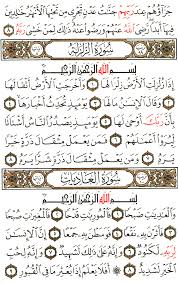 جَزَآؤُهُمْ عِندَ رَبِّهِمْ جَنَّٰتُ عَدْنٍ تَجْرِى مِن تَحْتِهَا ٱلْأَنْهَٰرُ خَٰلِدِينَ
فِيهَآ أَبَدًا رَّضِىَ ٱللَّهُ عَنْهُمْ وَرَضُوا۟ عَنْهُ ذَٰلِكَ لِمَنْ خَشِىَ رَبَّهُۥ ٨
سُورَةُ الزَّلْزَلَةِ
بِسْمِ ٱللَّهِ ٱلرَّحْمَٰنِ ٱلرَّحِيمِ
إِذَا زُلْزِلَتِ ٱلْأَرْضُ زِلْزَالَهَا ١ وَأَخْرَجَتِ ٱلْأَرْضُ أَثْقَالَهَا
٢ وَقَالَ ٱلْإِنسَٰنُ مَا لَهَا ٣ يَوْمَئِذٍ تُحَدِّثُ أَخْبَارَهَا ٤
بِأَنَّ رَبَّكَ أَوْحَىٰ لَهَا ٥ يَوْمَئِذٍ يَصْدُرُ ٱلنَّاسُ أَشْتَاتًا
لِّيُرَوْا۟ أَعْمَٰلَهُمْ ٦ فَمَن يَعْمَلْ مِثْقَالَ ذَرَّةٍ خَيْرًا
يَرَهُۥ ٧ وَمَن يَعْمَلْ مِثْقَالَ ذَرَّةٍ شَرًّا يَرَهُۥ ٨
سُورَةُ العَادِيَاتِ
بِسْمِ ٱللَّهِ ٱلرَّحْمَٰنِ ٱلرَّحِيمِ
وَٱلْعَٰدِيَٰتِ ضَبْحًا ١ فَٱلْمُورِيَٰتِ قَدْحًا ٢ فَٱلْمُغِيرَٰتِ صُبْحًا
٣ فَأَثَرْنَ بِهِۦ نَقْعًا ٤ فَوَسَطْنَ بِهِۦ جَمْعًا ٥ إِنَّ ٱلْإِنسَٰنَ
لِرَبِّهِۦ لَكَنُودٌ ٦ وَإِنَّهُۥ عَلَىٰ ذَٰلِكَ لَشَهِيدٌ ٧ وَإِنَّهُۥ لِحُبِّ
ٱلْخَيْرِ لَشَدِيدٌ ٨ أَفَلَا يَعْلَمُ إِذَا بُعْثِرَ مَا فِى ٱلْقُبُورِ ٩